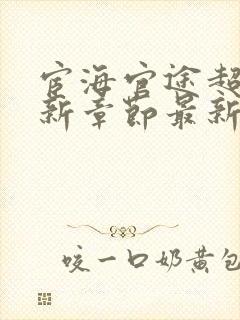 宦海官途超
新章节最新
咬一口奶黄包